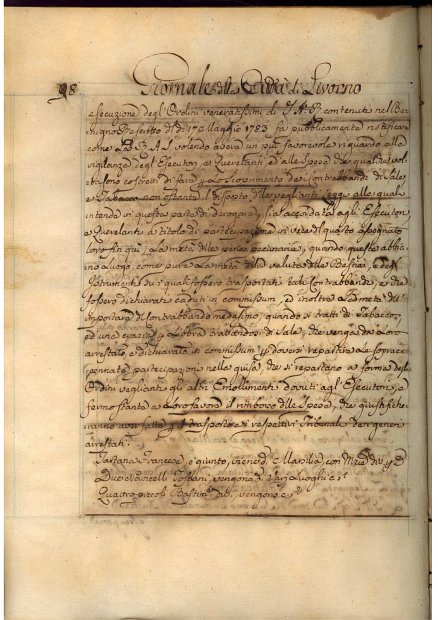 98
Giornale della Città di Livorno
esecuzione degl'Ordini veneratissimi di S. A. R. contenuti nel
de' di 17 Maggio 1783 fa pubblicamente notificare
come la S. A. S. volendo avere un più favorevole riguardo alla
vigilanza degl'Esecutori, e Querelanti ed alle Spese che qual volta
costretti di fare per lo Scoprimento dei Contrabbandi di Sale,
e Tabacco non ostante il disposto delle veglianti Leggi alle quali
intende in questa parte di derogare, sia accordata agli Esecutori,
e Querelanti a titolo di partecipazione in vece di quanto
loro fin qui, la metà delle pene pecuniarie, quando queste abbiano
luogo, come pure la metà della valuta delle Bestie, e degl'
Istrumenti su i quali fossero trasportati tali Contrabbandi, e che
fossero dichiarati caduti in commissum, ed inoltre la metà dell'
importare di Contrabbando medesimo, quando si tratti di Tabacco,
ed una crazia per Libbra trattandosi di Sale, che venga da Loro
arrestato, e dichiarato in commissum per doversi repartire la sopra
accennata partecipazione nelle quise, che si repartano a forma degl'
Ordini veglianti gli altri Emolumenti dovuti agl'Esecutori, e
ferma stante a Loro favore il rimborso delle Spese, che
avranno fatte per il trasporto ai respettivi Tribunali dei generi
arrestati.
Tartana Francese, è giunta, viene di Marsilia, con
Due Navicelli Toscani, vengono da Luoghi
Quattro piccoli Bastimenti vengono